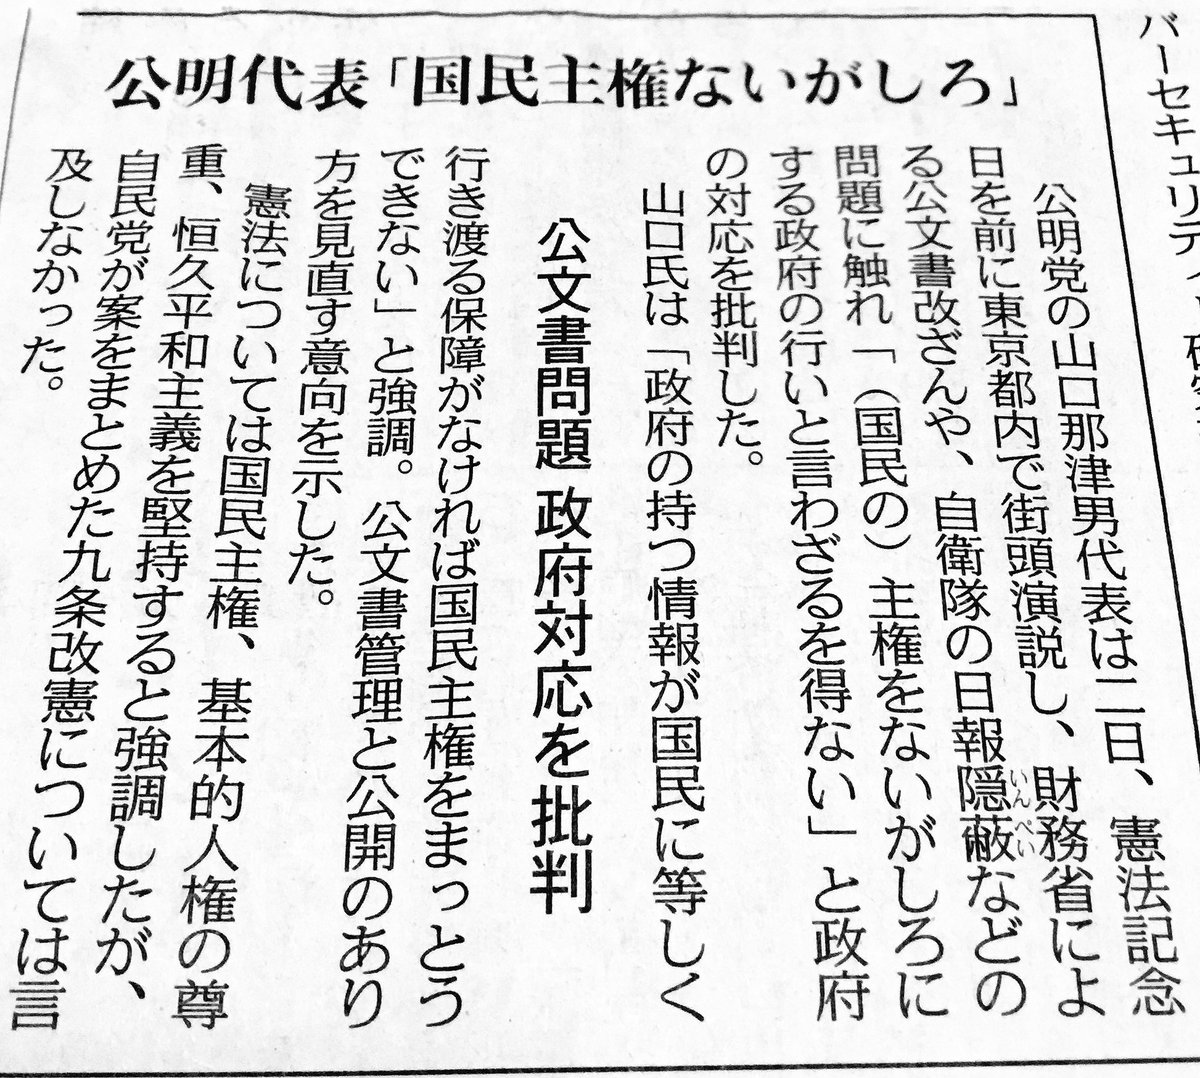 公明代表「国民主権ないがしろ」
公文書問題 政府対応を批判
公明党の山口那津男代表は二日、憲法記念
日を前に東京都内で街頭演説し、財務省によ
る公文書改ざんや、自衛隊の日報隠蔽などの
いんぺい
問題に触れ「(国民の)主権をないがしろに
する政府の行いと言わざるを得ない」と政府
の対応を批判した。
山口氏は「政府の持つ情報が国民に等しく
行き渡る保障がなければ国民主権をまっとう
できない」と強調。公文書管理と公開のあり
方を見直す意向を示した。
憲法については国民主権、基本的人権の尊
重、恒久平和主義を堅持すると強調したが、
自民党が案をまとめた九条改憲については言
及しなかった。
バーセキュリティ